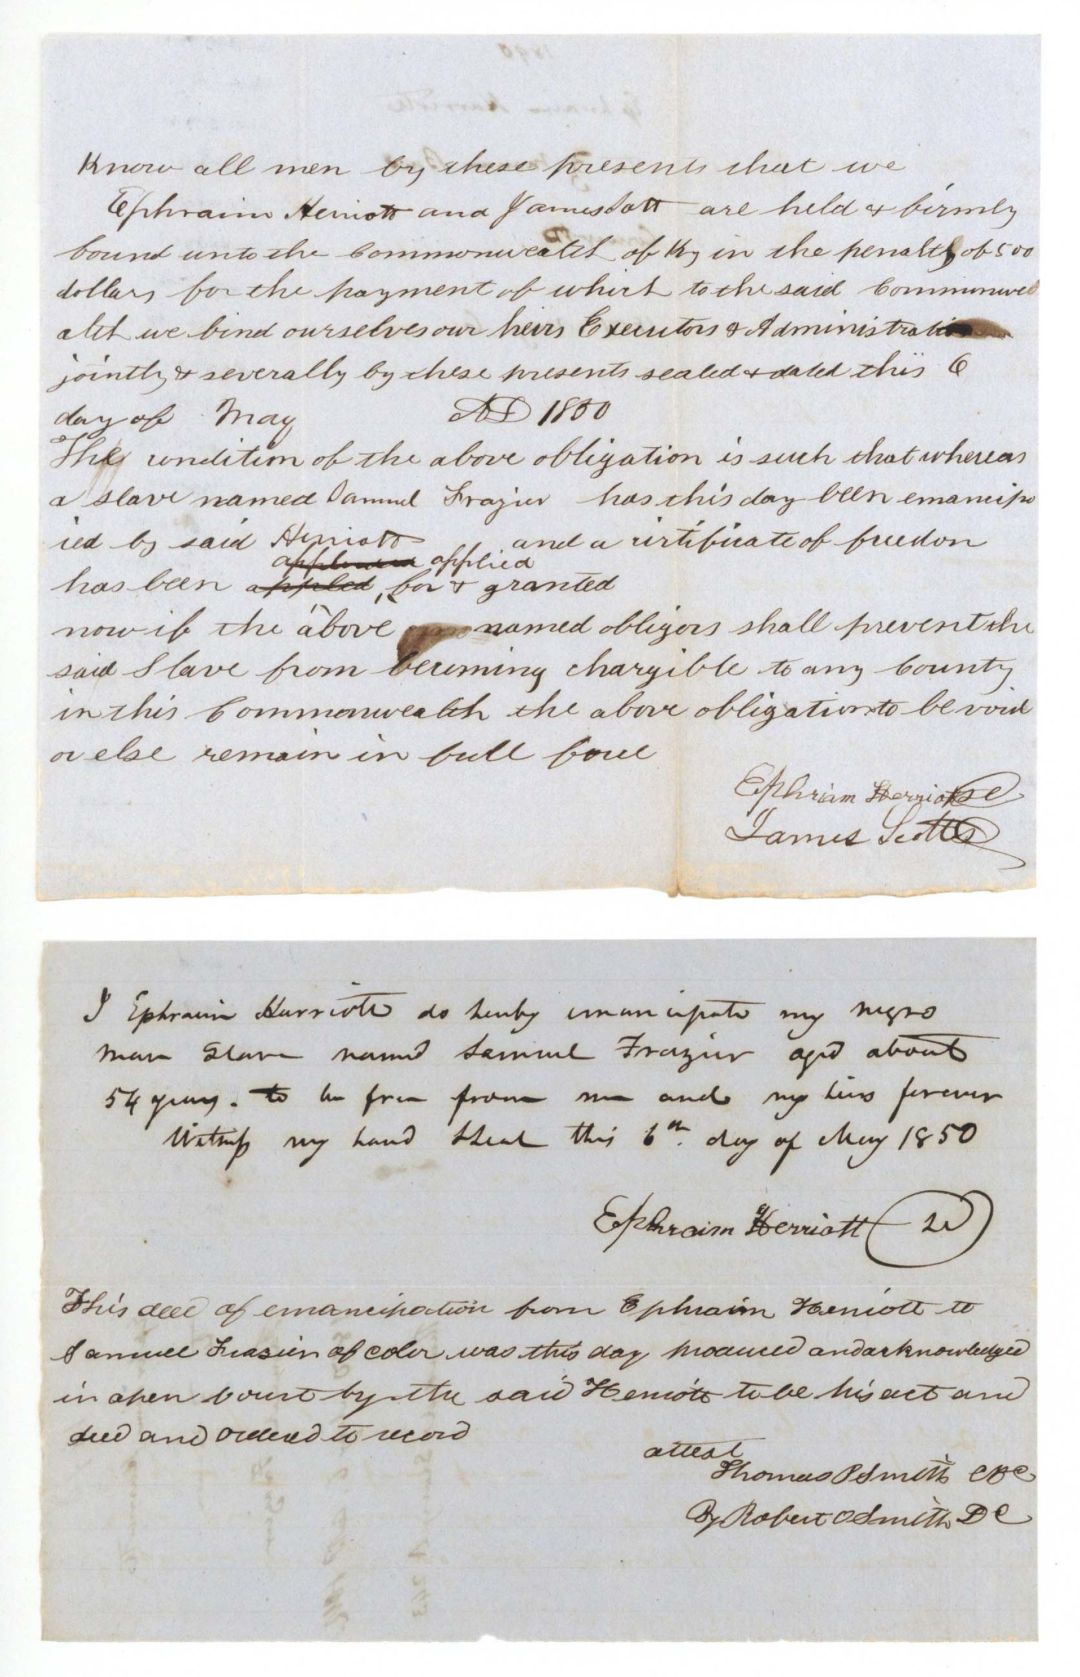 Know all men by these presents that we
Ephraim Herriott and James Scott are held & firmly
bound unto the Commonwealth of Ky in the penalty of 500
dollars for the payment of which to the said Commonwe
alth we bind ourselves our heirs Executors & Administrators
jointly & severally by these presents sealed & dated this 6
day of May AD 1850
The condition of the above obligation is such that whereas
a slave named Samuel Frazier has this day been emancipa
ted by said Herriott and a certificate of freedom
applied
has been for & granted
now if the above named obligors shall prevent the
said Slave from becoming chargible to any County
in this Commonwealth the above obligation to be void
or else remain in full force
Ephriam Herriott
James Scott
I Ephraim Harriott do hereby emancipate my negro
man Slave named Samuel Frazier aged about
54 years. to be free from me and my heirs forever
Witness my hand & Seal this 6th. day of May 1850
Ephraim Herriott
This deed of emancipation from Ephraim Herriott to
Samuel Frasier of color was this day produced and acknowledged
in open court by the said Herriott to be his act and
deed and ordered to record
attest
Thomas P Smith CBC
By Robert O Smith DC